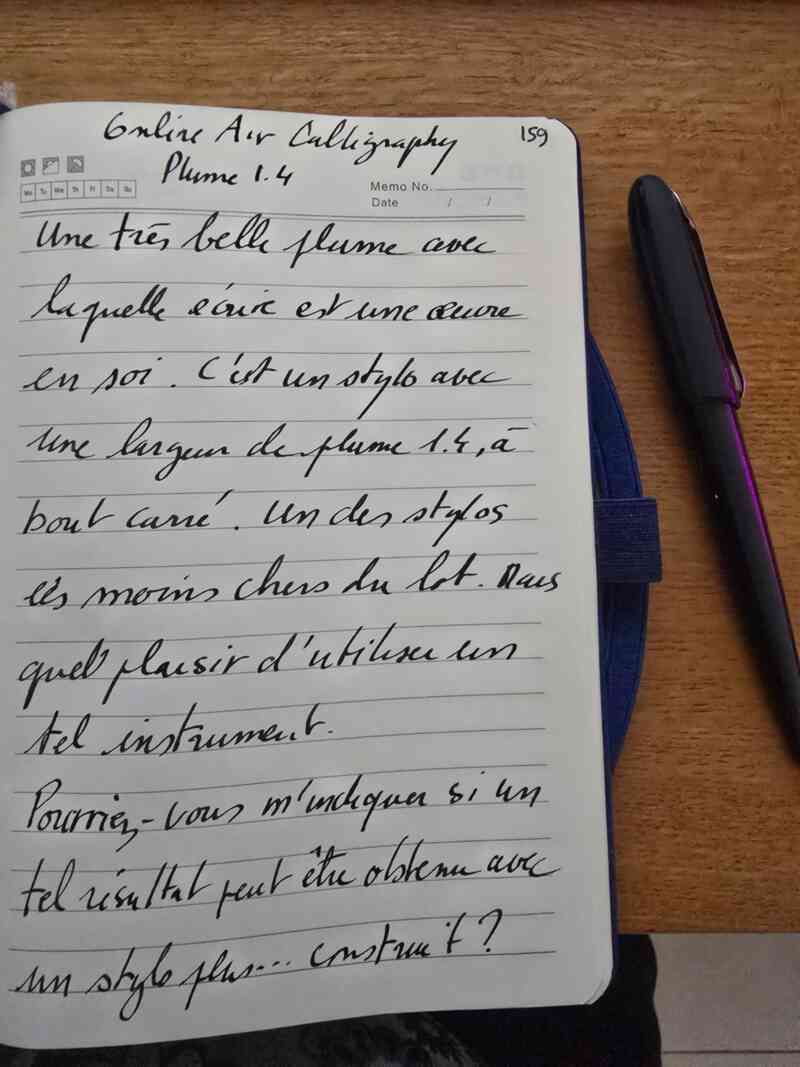 Online Air Calligraphy 159
Plume 1.4
Mo Tu We Th Fr Sa Su
Memo No.
Date / /
Une très belle plume avec
laquelle écrire est une œuvre
en soi. C'est un stylo avec
une largeur de plume 1.4, à
bout carré. Un des stylos
les moins chers du lot. Mais
quel plaisir d'utiliser un
tel instrument.
Pourriez-vous m'indiquer si un
tel résultat peut être obtenu avec
un stylo plus... construit ?